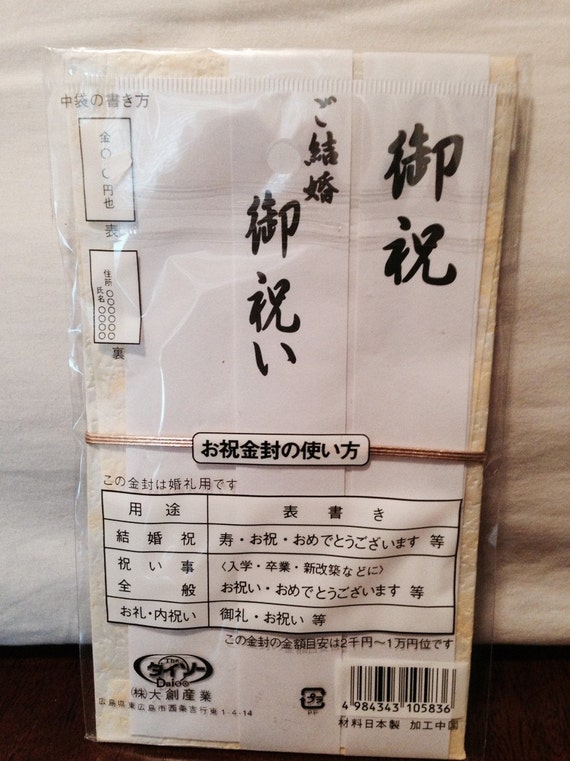 中袋の書き方
金○○円也
表
住所○○○○○
氏名○○○○○
裏
御祝
ご結婚
御祝い
お祝金封の使い方
この金封は婚礼用です
用途 表書き
結婚祝 寿・お祝・おめでとうございます 等
祝い事全般 〈入学・卒業・新改築などに〉
お祝い・おめでとうございます 等
お礼・内祝い 御礼・お祝い 等
この金封の金額目安は2千円〜1万円位です
The
ダイソー
Daiso
㈱大創産業
広島県東広島市西条吉行東1-4-14
プラ
PP
4 984343 105836
材料日本製 加工中国